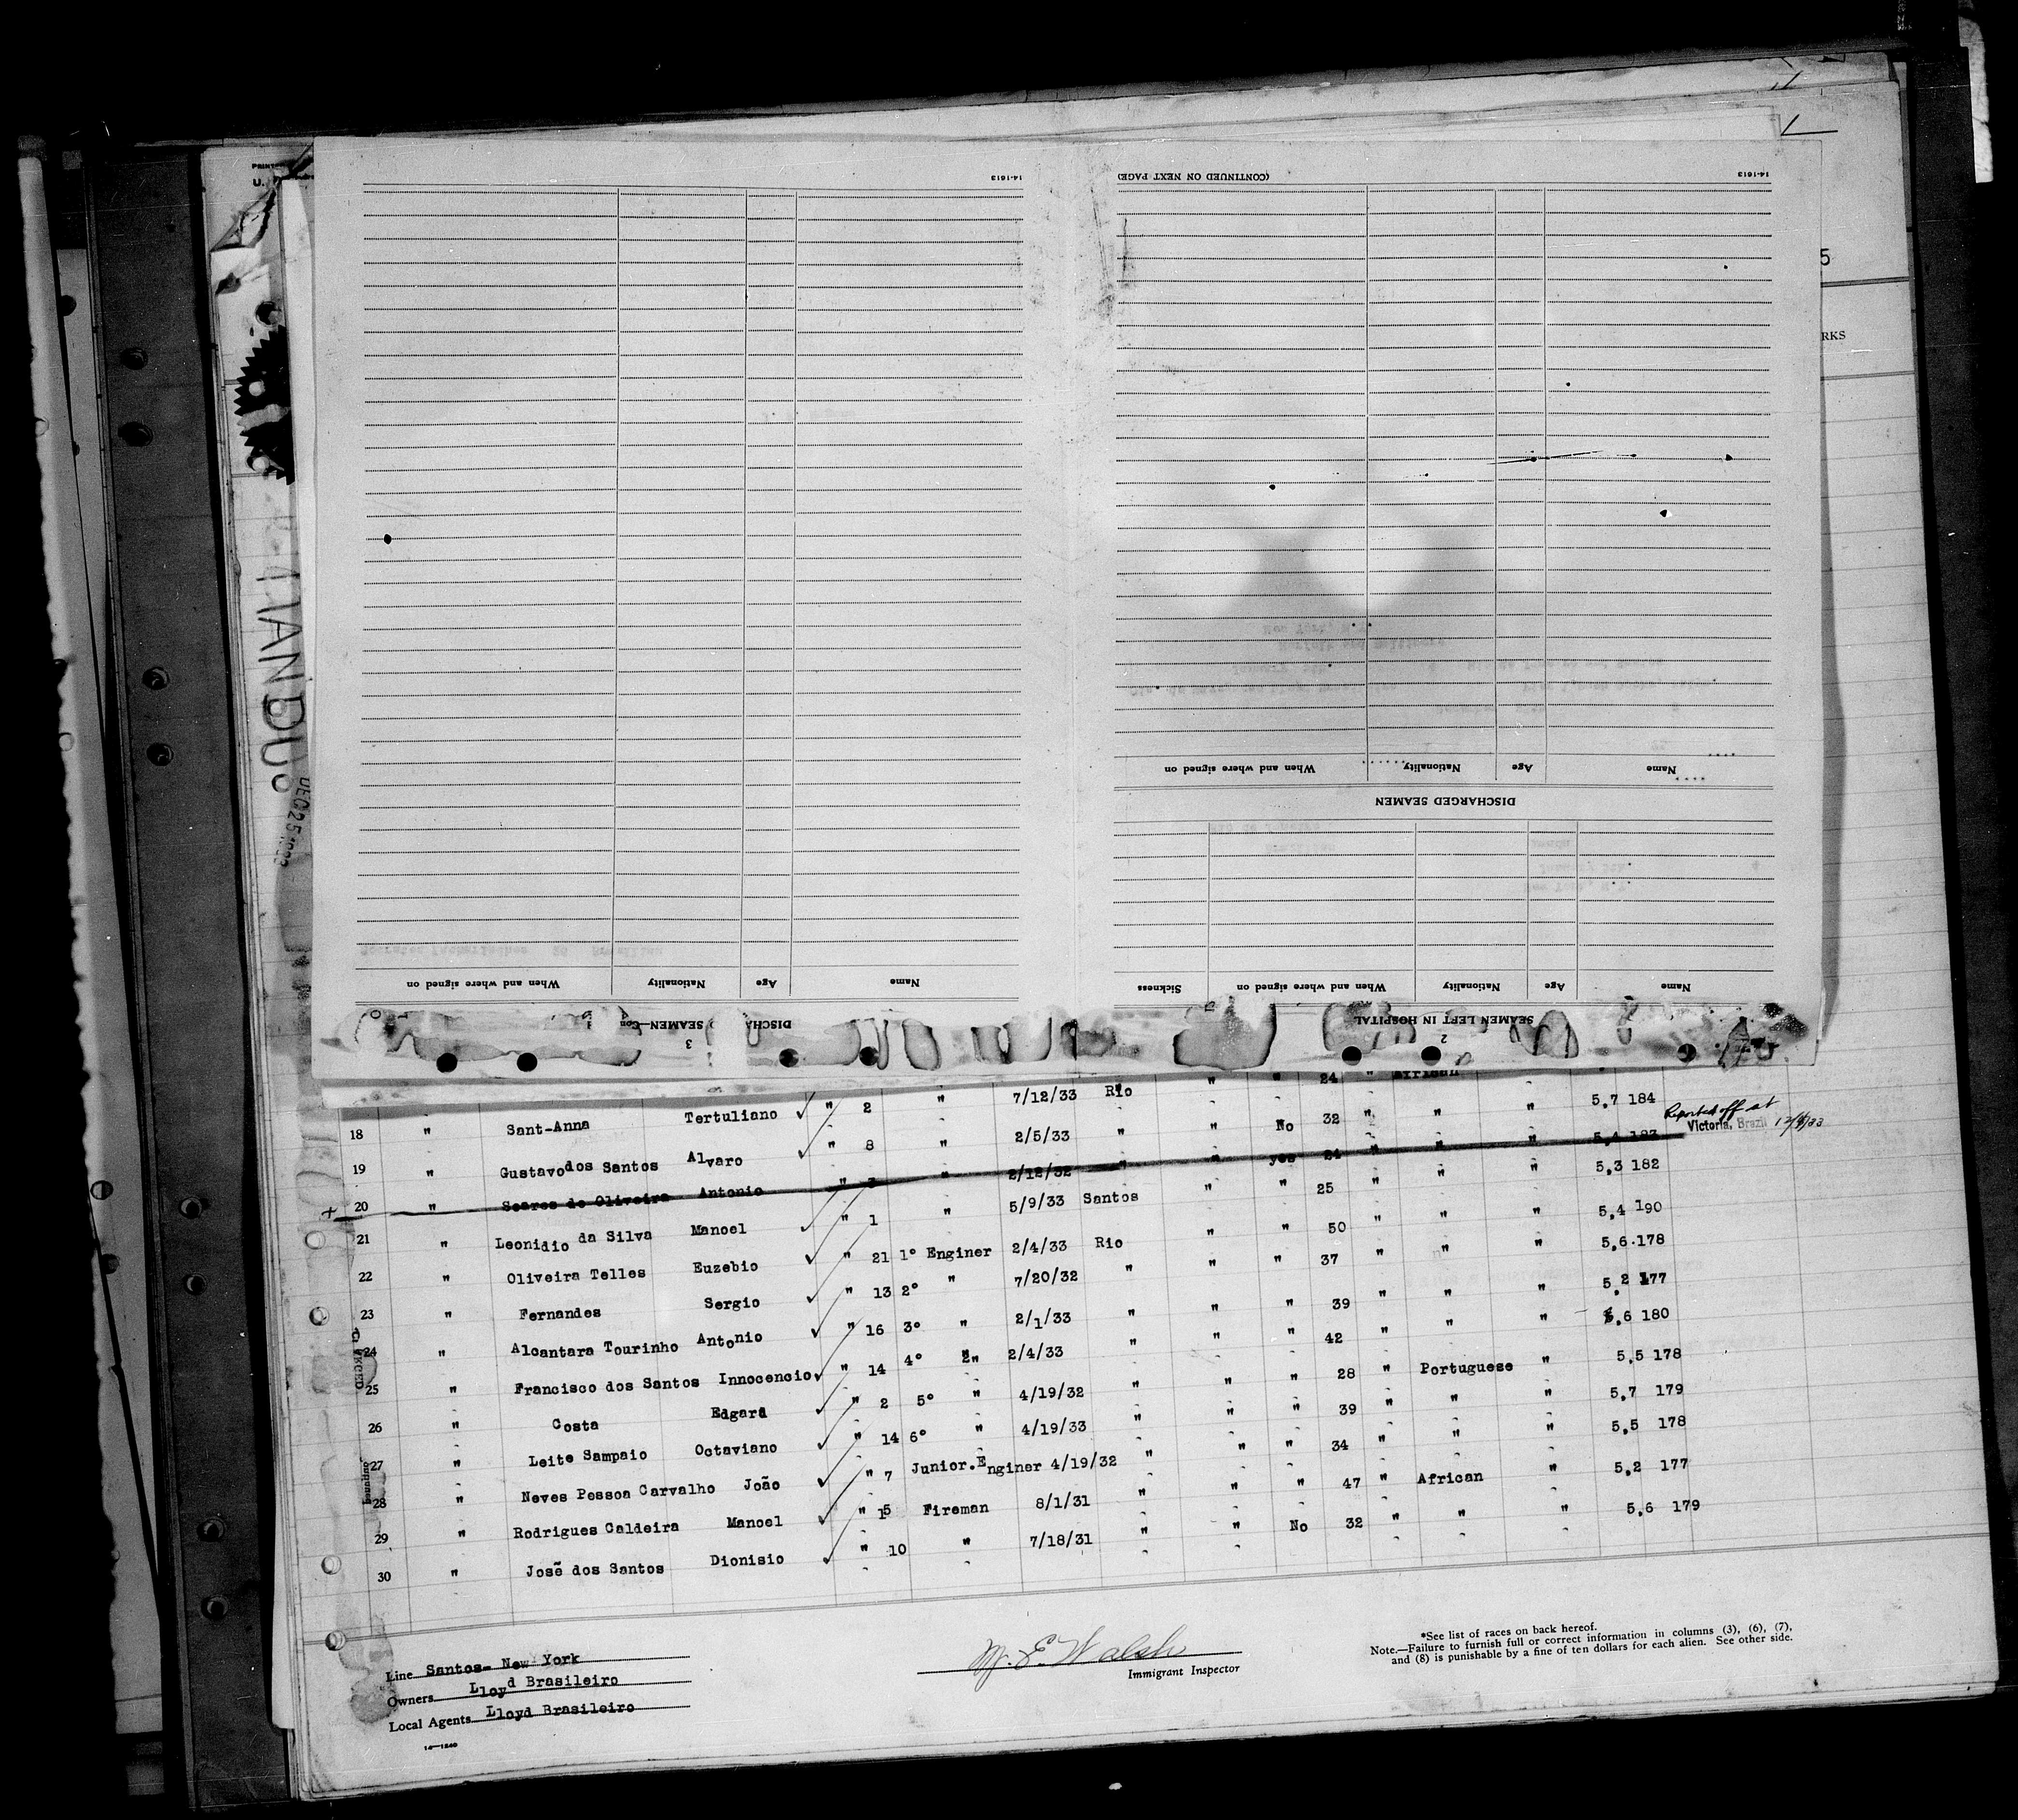 PRINT
U.
5
RKS
TANDU
DEC 25 1933
14-1613
(CONTINUED ON NEXT PAGE)
14-1613
When and where signed on Nationality Age Name
DISCHARGED SEAMEN
When and where signed on Nationality Age Name
Sickness When and where signed on Nationality Age Name
DISCHA SEAMEN—Con
3
SEAMEN LEFT IN HOSPITAL
2
" 24 "
18 " Sant-Anna Tertuliano " 2 " 7/12/33 Rio " No 32 " " " 5,7 184
19 " Gustavo dos Santos Alvaro " 8 " 2/5/33 " " yes 24 " " " 5,4 183
Reported off at
Victoria, Brazil 12/9/33
20 " Soares de Oliveira Antonio " 7 " 2/12/32 " " " 25 " " " 5,3 182
21 " Leonidio da Silva Manoel " 1 " 5/9/33 Santos " " 50 " " " 5,4 190
22 " Oliveira Telles Euzebio " 21 1° Enginer 2/4/33 Rio " " 37 " " " 5,6 178
23 " Fernandes Sergio " 13 2° " 7/20/32 " " " 39 " " " 5,2 177
24 " Alcantara Tourinho Antonio " 16 3° " 2/1/33 " " " 42 " " " 5,6 180
25 " Francisco dos Santos Innocencio " 14 4° " 2/4/33 " " " 28 " Portuguese " 5,5 178
26 " Costa Edgard " 2 5° " 4/19/32 " " " 39 " " " 5,7 179
27 " Leite Sampaio Octaviano " 14 6° " 4/19/33 " " " 34 " " " 5,5 178
28 " Neves Pessoa Carvalho João " 7 Junior.Enginer 4/19/32 " " " 47 " African " 5,2 177
29 " Rodrigues Caldeira Manoel " 15 Fireman 8/1/31 " " No 32 " " " 5,6 179
30 " José dos Santos Dionisio " 10 " 7/18/31 "
Line Santos- New York
Owners Lloyd Brasileiro
Local Agents Lloyd Brasileiro
14—1240
M. E. Walsh
Immigrant Inspector
*See list of races on back hereof.
Note.—Failure to furnish full or correct information in columns (3), (6), (7),
and (8) is punishable by a fine of ten dollars for each alien. See other side.